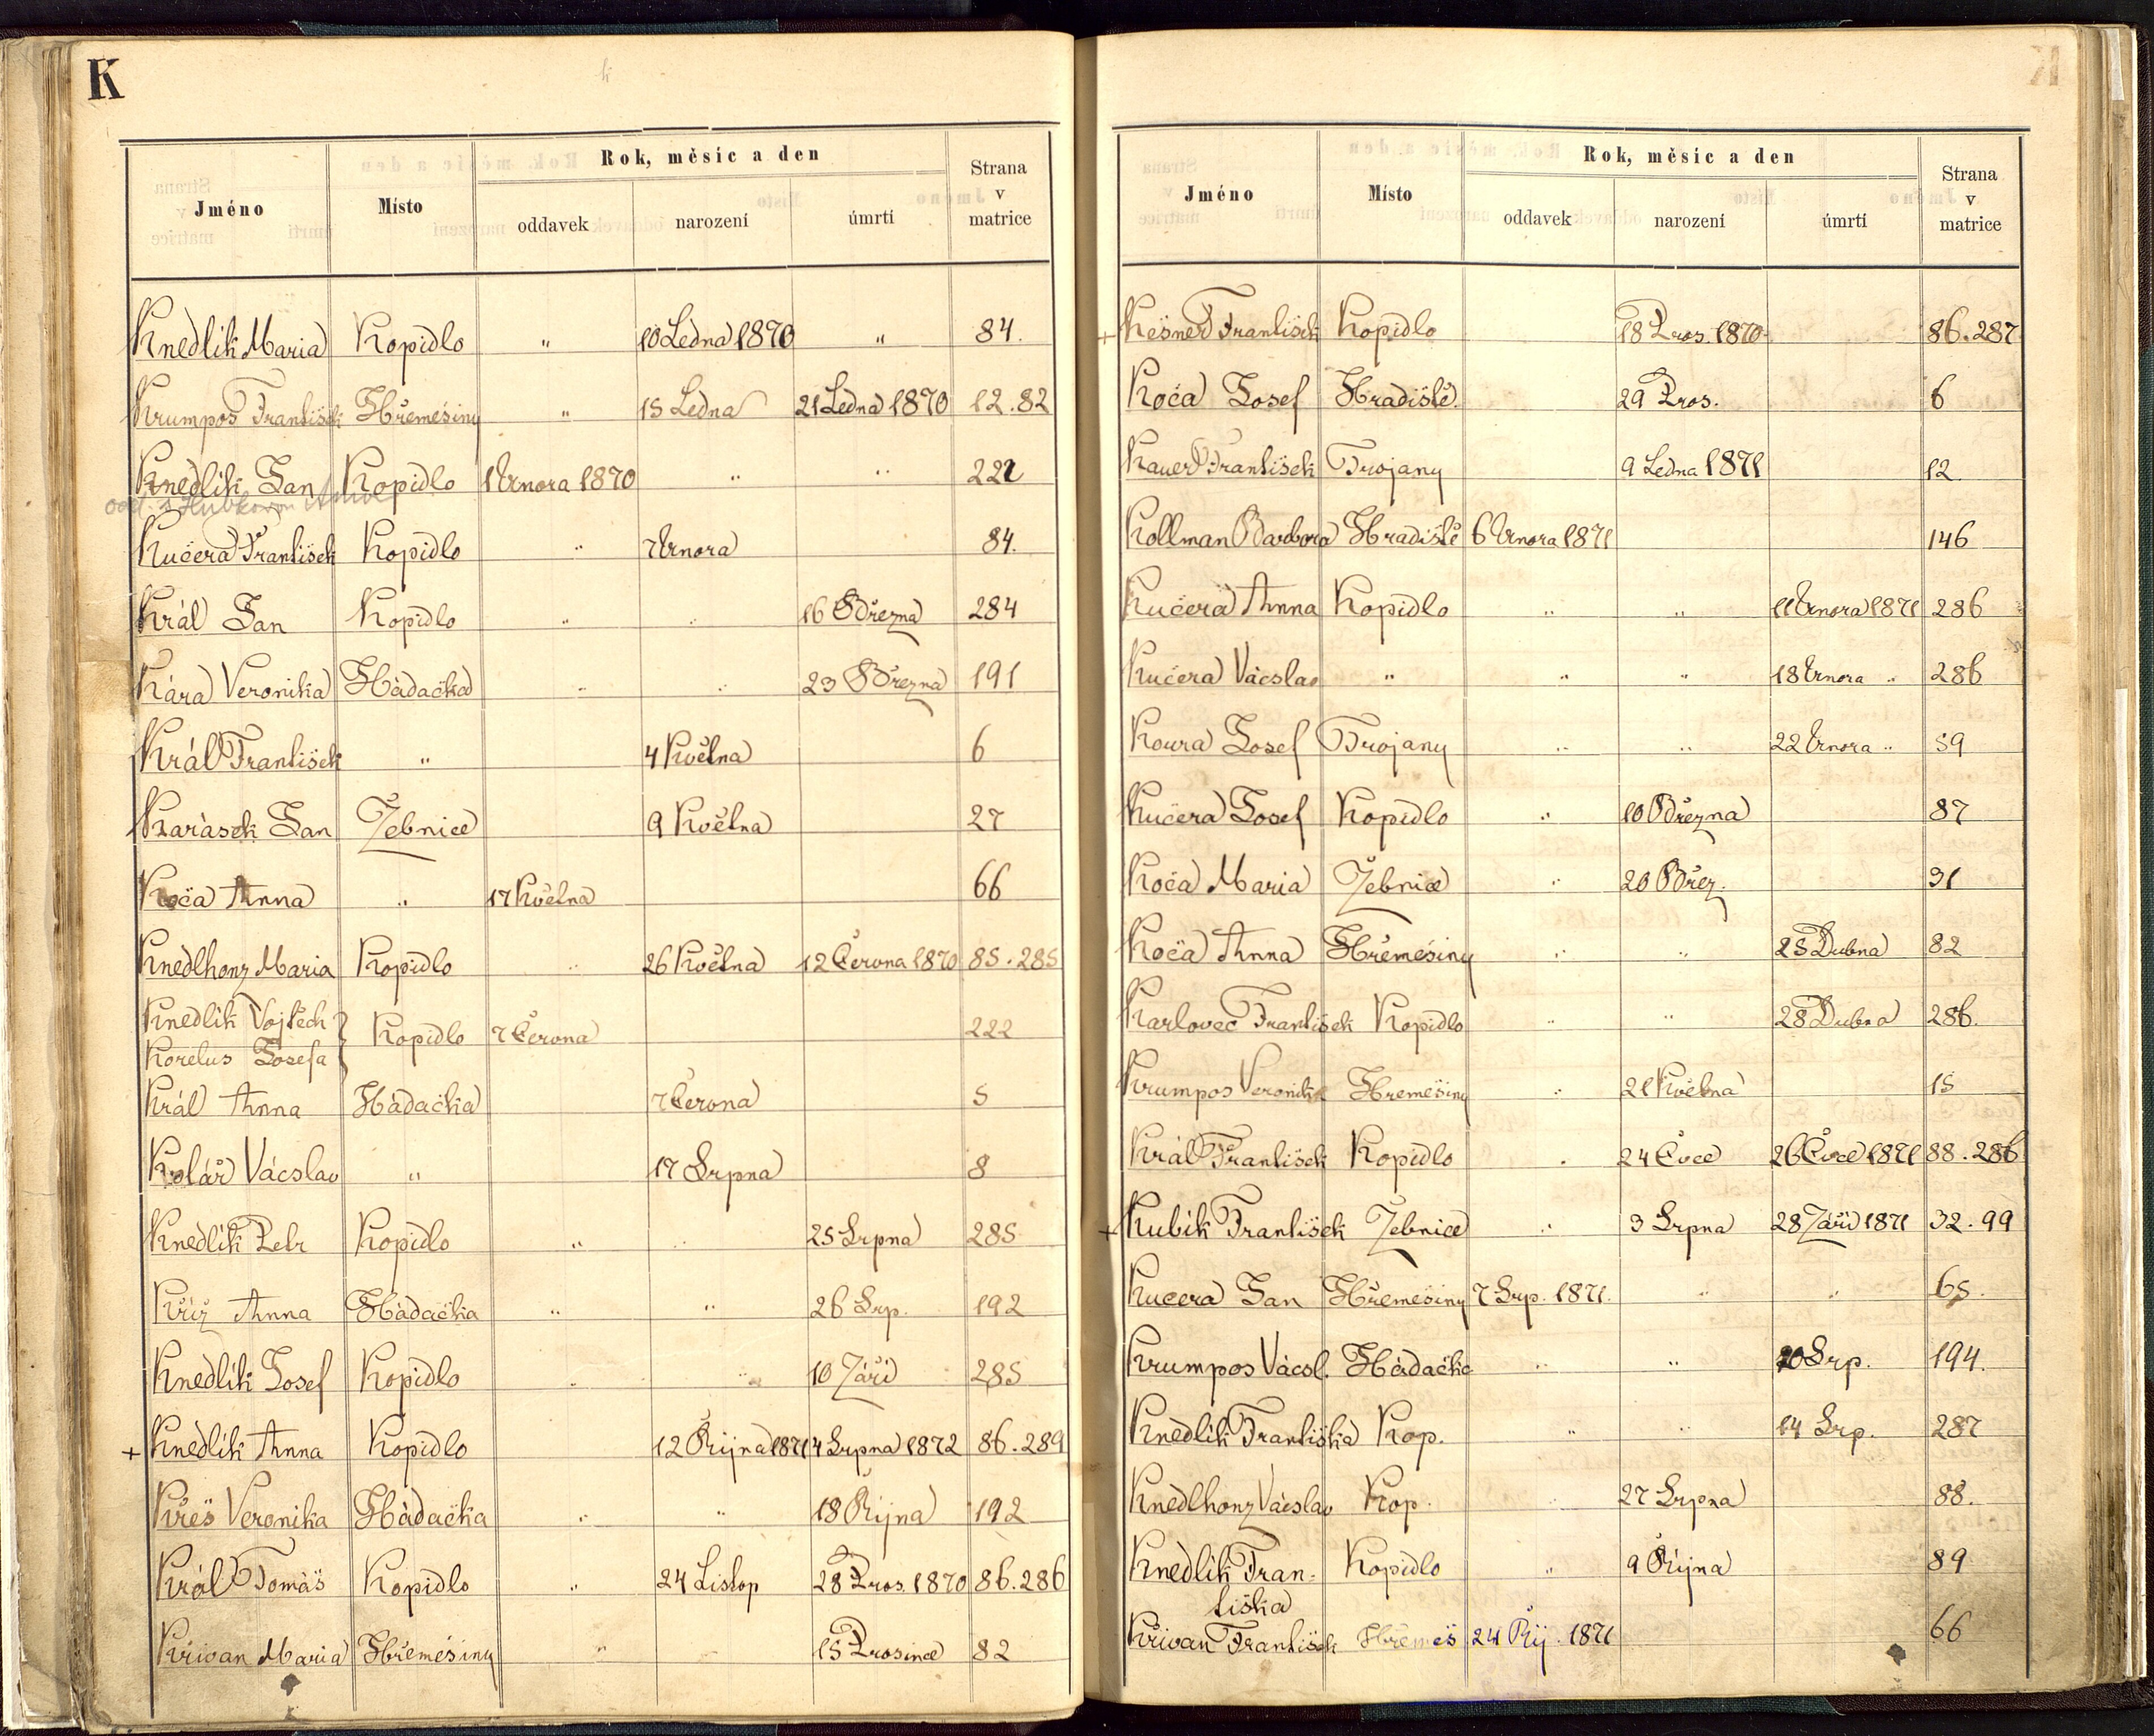 K
k
Jméno Místo Rok, měsíc a den Strana v matrice
oddavek narození úmrtí
Knedlík Maria Kopidlo " 10 Ledna 1870 " 84.
Krumpos František Hřemešiny " 15 Ledna 21 Ledna 1870 12.82
Knedlík Jan Kopidlo 1 Února 1870 " " 222
odd. s
Kučera František Kopidlo " 7 Února 84.
Král Jan Kopidlo " " 16 Března 284
Kára Veronika Hádačka " " 23 Března 191
Král František " 4 Května 6
Karásek Jan Žebnice 9 Května 27
Koča Anna " 17 Května 66
Knedlhonz Maria Kopidlo " 26 Května 12 Června 1870 85.285
Knedlík Vojtěch } Kopidlo 7 Června 222
Korelus Josefa
Král Anna Hádačka 7 Června 5
Kolář Václav " 17 Srpna 8
Knedlík Petr Kopidlo " " 25 Srpna 285
Kříž Anna Hádačka " " 26 Srp. 192
Knedlík Josef Kopidlo " " 10 Září 285
+ Knedlík Anna Kopidlo 12 Října 1871 4 Srpna 1872 86.289
Kreš Veronika Hádačka " " 18 Října 192
Král Tomáš Kopidlo " 24 Listop 28 Pros. 1870 86.286
Křivan Maria Hřemešiny " 15 Prosince 82
Jméno Místo Rok, měsíc a den Strana v matrice
oddavek narození úmrtí
+ Kesner František Kopidlo 18 Pros. 1870 86.287
Koča Josef Hradiště. 29 Pros. 6
Kauer František Trojany 9 Ledna 1871 12
Kollman Barbora Hradiště 6 Února 1871 146
Kučera Anna Kopidlo " " 11 Února 1871 286
Kučera Václav " " " 18 Února " 286
Koura Josef Trojany " " 22 Února " 59
Kučera Josef Kopidlo " 10 Března 87
Koča Maria Žebnice " 20 Břez. 31
Koča Anna Hřemešiny " " 25 Dubna 82
Karlovec František Kopidlo " " 28 Dubna 286.
Krumpos Veronika Hřemešiny " 21 Května 15
Král František Kopidlo " 24 Čvce 26 Čvce 1871 88.286
+ Kubík František Žebnice " 3 Srpna 28 Září 1871 32.99
Kucera Jan Hřemešiny 7 Srp. 1871. " " 65.
Krumpos Václ. Hádačka " " 20 Srp. 194.
Knedlík Františka Kop. " " 14 Srp. 287
Knedlhonz Václav Kop. " 27 Srpna 88.
Knedlík Fran- Kopidlo " 9 Října 89
tiška
Křivan František Hřemeš 24 Říj. 1871 66